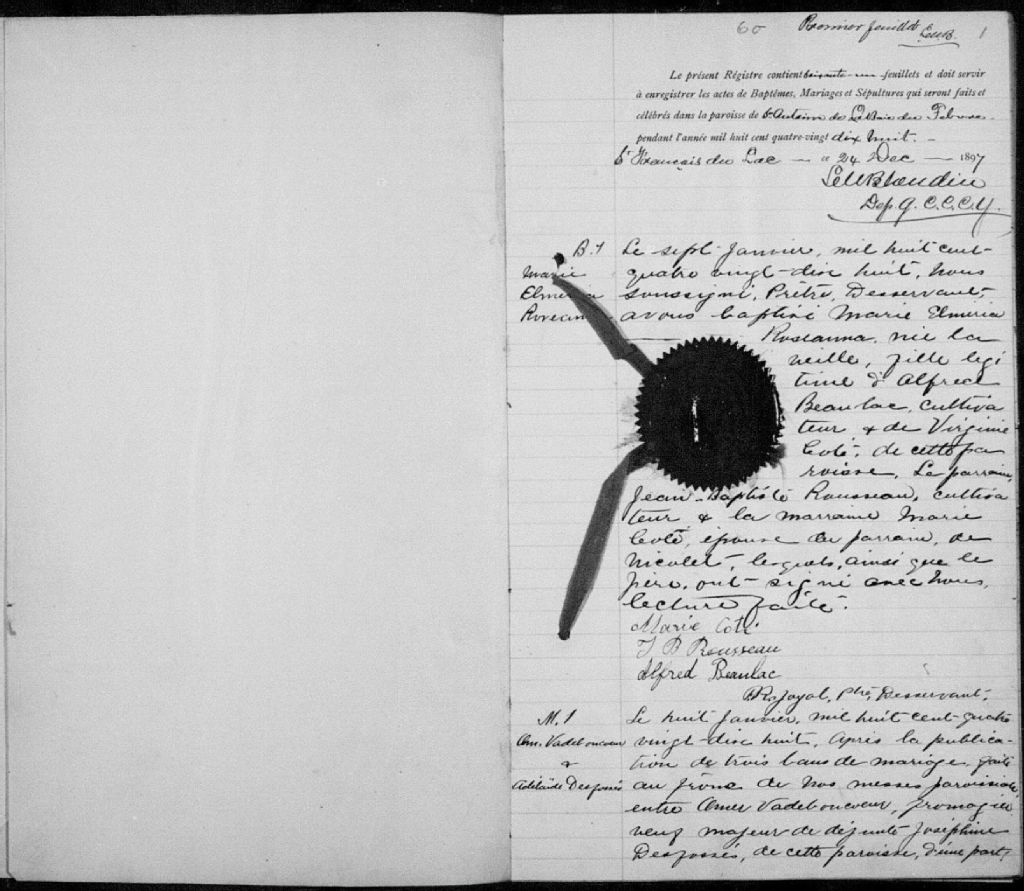 60 Premier feuillet 1
Le présent Régistre contient soixante feuillets et doit servir
à enregistrer les actes de Baptêmes, Mariages et Sépultures qui seront faits et
célébrés dans la paroisse de St Antoine de La Baie du Febvre
pendant l'année mil huit cent quatre-vingt dix huit. -
St François du Lac — ce 24 Dec — 1897
Dep. g. C. C. C. Y.
B. 1 Le sept Janvier, mil huit cent-
Marie quatre vingt-dix huit, Nous
Elmeria soussigné, Prêtre, Desservant,
avons baptisé Marie Elmiria
Roseanna, née la
veille, fille légi
time d'Alfred
Beaulac, cultiva
teur & de Virginie
Coté, de cette pa
roisse. Le parrain,
Jean-Baptiste Rousseau, cultiva
teur & la marraine Marie
Coté, épouse du parrain, de
Nicolet, lesquels, ainsi que le
père, ont signé avec Nous,
lecture faite.
Marie Coté
J B Rousseau
Alfred Beaulac
Ptre, Desservant.
M. 1 Le huit Janvier, mil huit cent-quatre
Om. Vadeboncoeur vingt-dix huit, Après la publica-
& tion de trois bans de mariage, faite
Adélaïde Desfossés au prône de nos messes paroissiale,
entre Omer Vadeboncoeur, fromagier
veuf majeur de défunte Joséphine
Desfossés, de cette paroisse, d'une part,